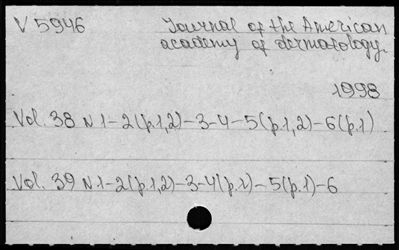 V 5946
Journal of the American
academy of dermatology.
1998
Vol. 38 N 1-2(p.1,2)-3-4-5(p.1,2)-6(p.1)
Vol. 39 N.1-2(p.1,2)-3-4(p.1)-5(p.1)-6